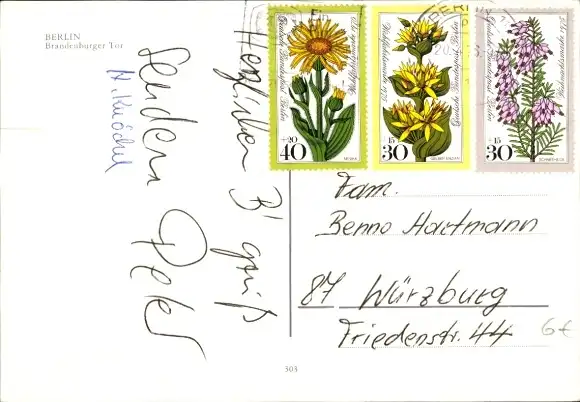 BERLIN
Brandenburger Tor
Herzlichen B' gruß
senden
Peter
N. Knöchel
Deutsche Bundespost Berlin
Wohlfahrtsmarke
+20
40
ARNIKA
Deutsche Bundespost Berlin
Wohlfahrtsmarke
+15
30
GELBER ENZIAN
Deutsche Bundespost Berlin
+15
30
SCHNEEHEIDE
BERLIN
Fam.
Benno Hartmann
87 Würzburg
Friedenstr. 44
6€
503